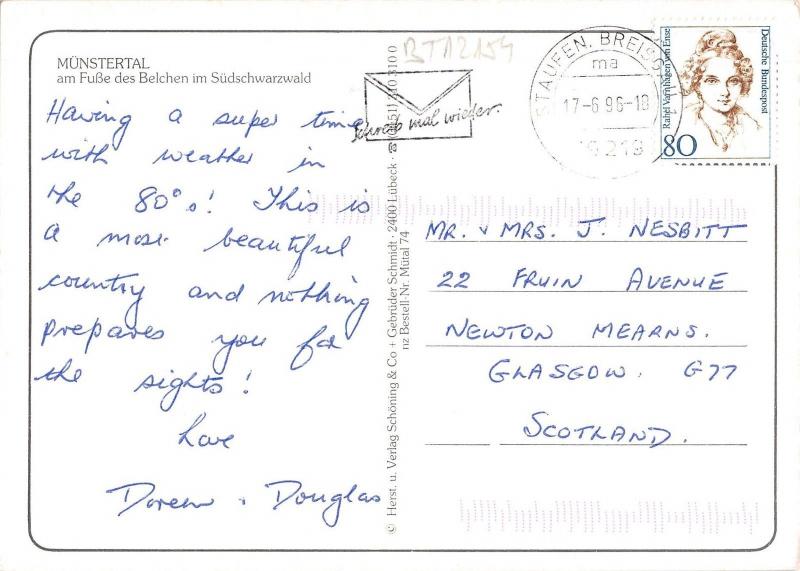 MÜNSTERTAL
am Fuße des Belchen im Südschwarzwald
Having a super time
with weather in
the 80°s! This is
a most beautiful
country and nothing
prepares you for
the sights!
Love
Doreen + Douglas
© Herst. u. Verlag Schöning & Co + Gebrüder Schmidt · 2400 Lübeck · ☎
nz Bestell-Nr. Mütal 74
BT12154
schreib mal wieder.
STAUFEN, BREISG
ma
17-6 96-18
79219
Rahel Varnhagen von Ense
Deutsche Bundespost
80
MR. + MRS. J. NESBITT
22 FRUIN AVENUE
NEWTON MEARNS.
GLASGOW. G77
SCOTLAND.